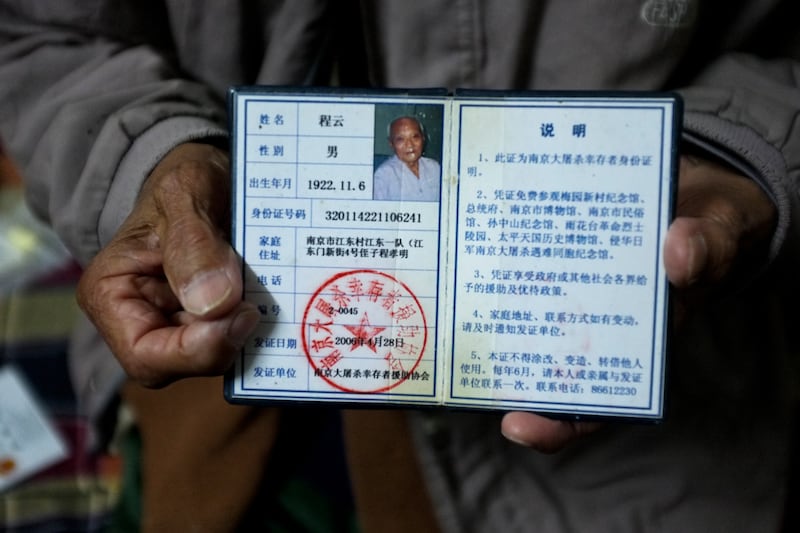 姓名 程云
性别 男
出生年月 1922.11.6
身份证号码 320114221106241
家庭 南京市江东村江东一队（江
住址 东门新街4号侄子程孝明
电话
编号 2-0045
发证日期 2006年4月28
发证单位 南京大屠杀幸存者援助协会
南京大屠杀幸存者援助协会
说 明
1、此证为南京大屠杀幸存者身份证
明。
2、凭证免费参观梅园新村纪念馆、
总统府、南京市博物馆、南京市民俗
馆、孙中山纪念馆、雨花台革命烈士
陵园、太平天国历史博物馆、侵华日
军南京大屠杀遇难同胞纪念馆。
3、凭证享受政府或其他社会各界给
予的援助及优待政策。
4、家庭地址、联系方式如有变动，
请及时通知发证单位。
5、本证不得涂改、变造、转借他人
使用。每年6月，请本人或亲属与发证
单位联系一次。联系电话：86612230